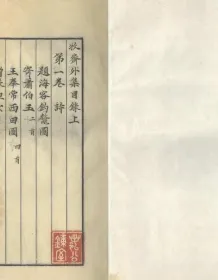 牧齋外集目錄上
第一卷 詩
題海客釣鰲圖
寄蕭伯玉 二首
王奉常西田圖 四首